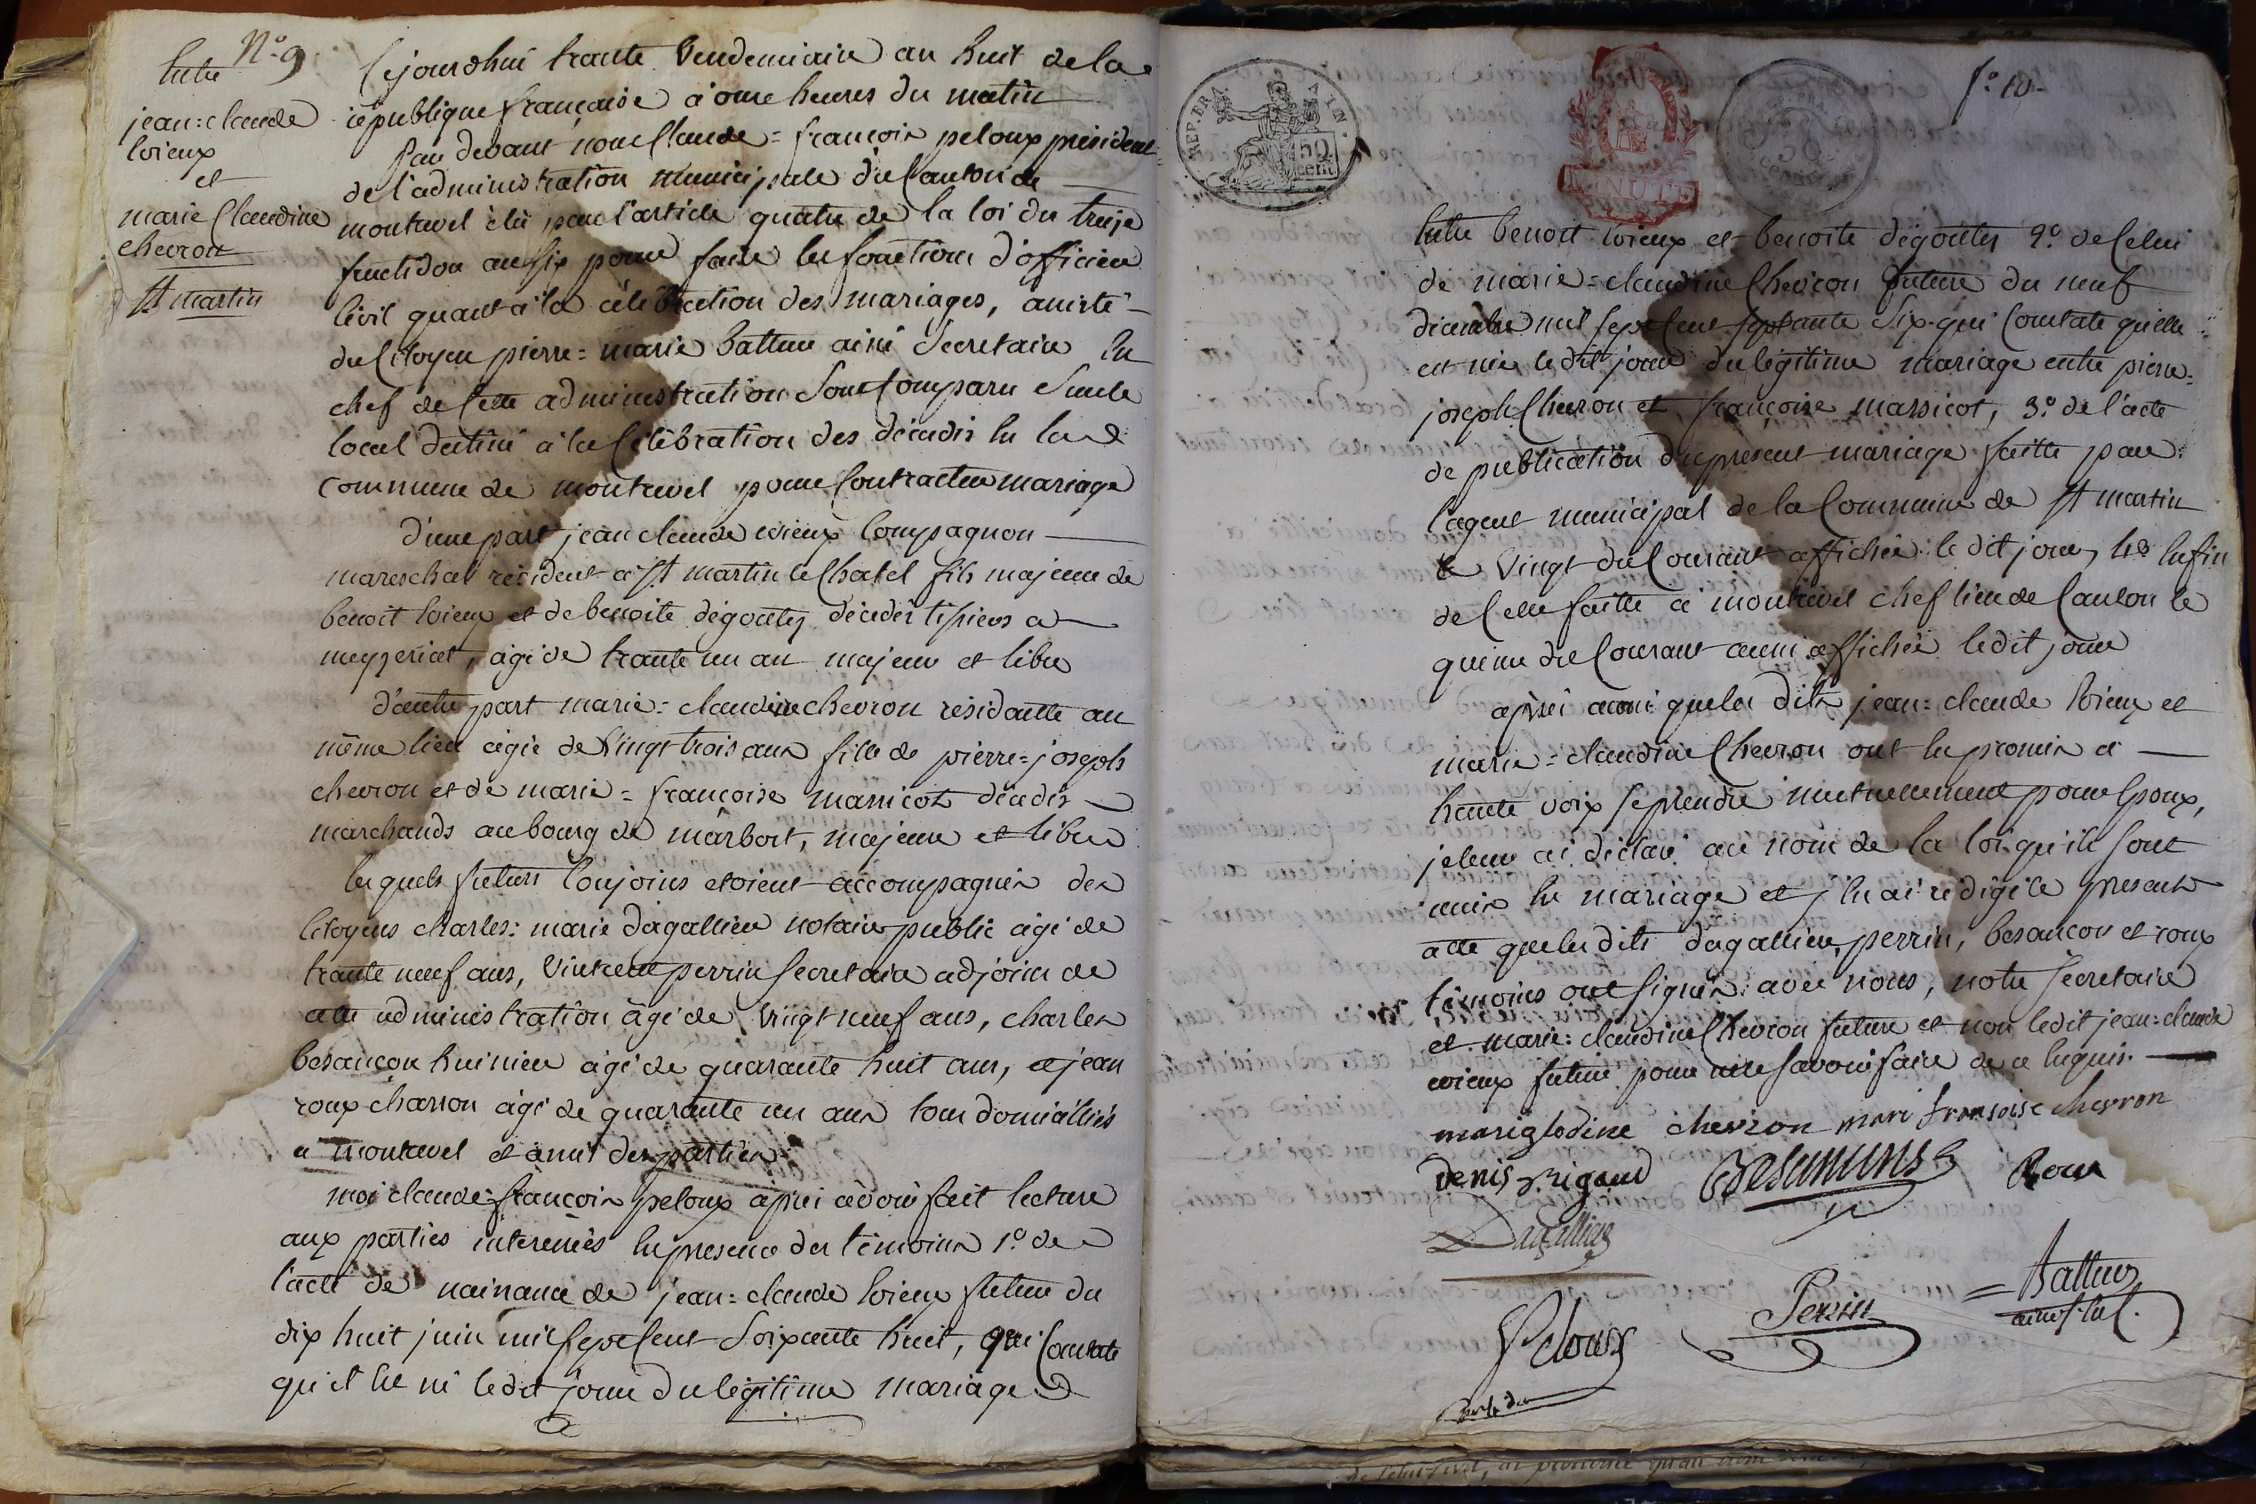 N° 9
Entre
jean=claude
loieux
et
marie Claudine
chevron
St martin
Cejourdhui trante Vendemiaire an huit de la
republique française à onze heures du matin
Par devant nous Claude=françois peloux président
de l'administration municipale du Canton de
montrevel élu par l'article quatre de la loi du treize
fructidor an six pour faire les fonctions d'officier
Civil quant à la célébration des mariages, assisté
du Citoyen pierre=marie Battur ainé Secretaire En
chef de Cette administration Sont Comparu Sur le
local destiné à la Célébration des décadis En la
commune de montrevel pour Contracter mariage
d'une part jean claude loieux Compagnon
mareschal résident à St martin le Chatel fils majeur de
benoit loieux et de benoite dégoutes décédés
meyzeriat, agé de trante un an majeur et libre
d'autre part marie=claudine chevron résidante au
même lieu agée de Vingt trois ans fille de pierre=joseph
chevron et de marie=françoise marsicot décédés
marchands au bourg de marbost, majeure et libre
lesquels futurs Conjoins etoient accompagnés des
Citoyens charles=marie dagallier notaire public agé de
trante neuf ans, Vincent perrin Secretaire adjoint de
cette administration âgé de Vingt neuf ans, charles
besancon huissier agé de quarante huit ans, et jean
roux charron agé de quarante un ans tous domiciliés
a montrevel et amis des parties
moi claude=françois peloux après avoir fait lecture
aux parties interessées En presence des témoins 1° de
l'acte de naissance de jean=claude loieux futur du
dix huit juin mil Sept Cent Soixante huit, qui Constate
qu'il Est né ledit jour du légitime mariage
f° 10
REP. FRA.
50
cent
MINUTE
Entre benoit loieux et benoite dégoutes 2° de Celui
de marie=claudine Chevron future du neuf
décembre mil Sept Cent Septante Six qui Constate quelle
est née le dit jour du légitime mariage entre pierre=
joseph Chevron et françoise marsicot, 3° de l'acte
de publication du présent mariage faitte par
l'agent municipal de la Commune de St martin
le Vingt du Courant affichée le dit jour, Et Enfin
de Celle faitte à montrevel chef lieu de Canton le
quinze du Courant aussi affichée ledit jour
après aussi que les dits jean=claude loieux et
marie=claudine Chevron ont Eu promis à
haute voix Se prendre mutuellement pour Epoux,
je leur ai déclaré au nom de la loi qu'ils Sont
unis En mariage et j'En ai rédigé le présent
acte que les dits dagallier, perrin, besancon et roux
témoins ont Signés avec nous, notre Secretaire
et marie=claudine Chevron future et non ledit jean=claude
loieux futur pour ne Savoir faire de ce Enquis.
mariglodine chevron mari fransoise chevron
denis rigaud Besancons Roux
Dagallier
Peloux Perrin Battur
ainé